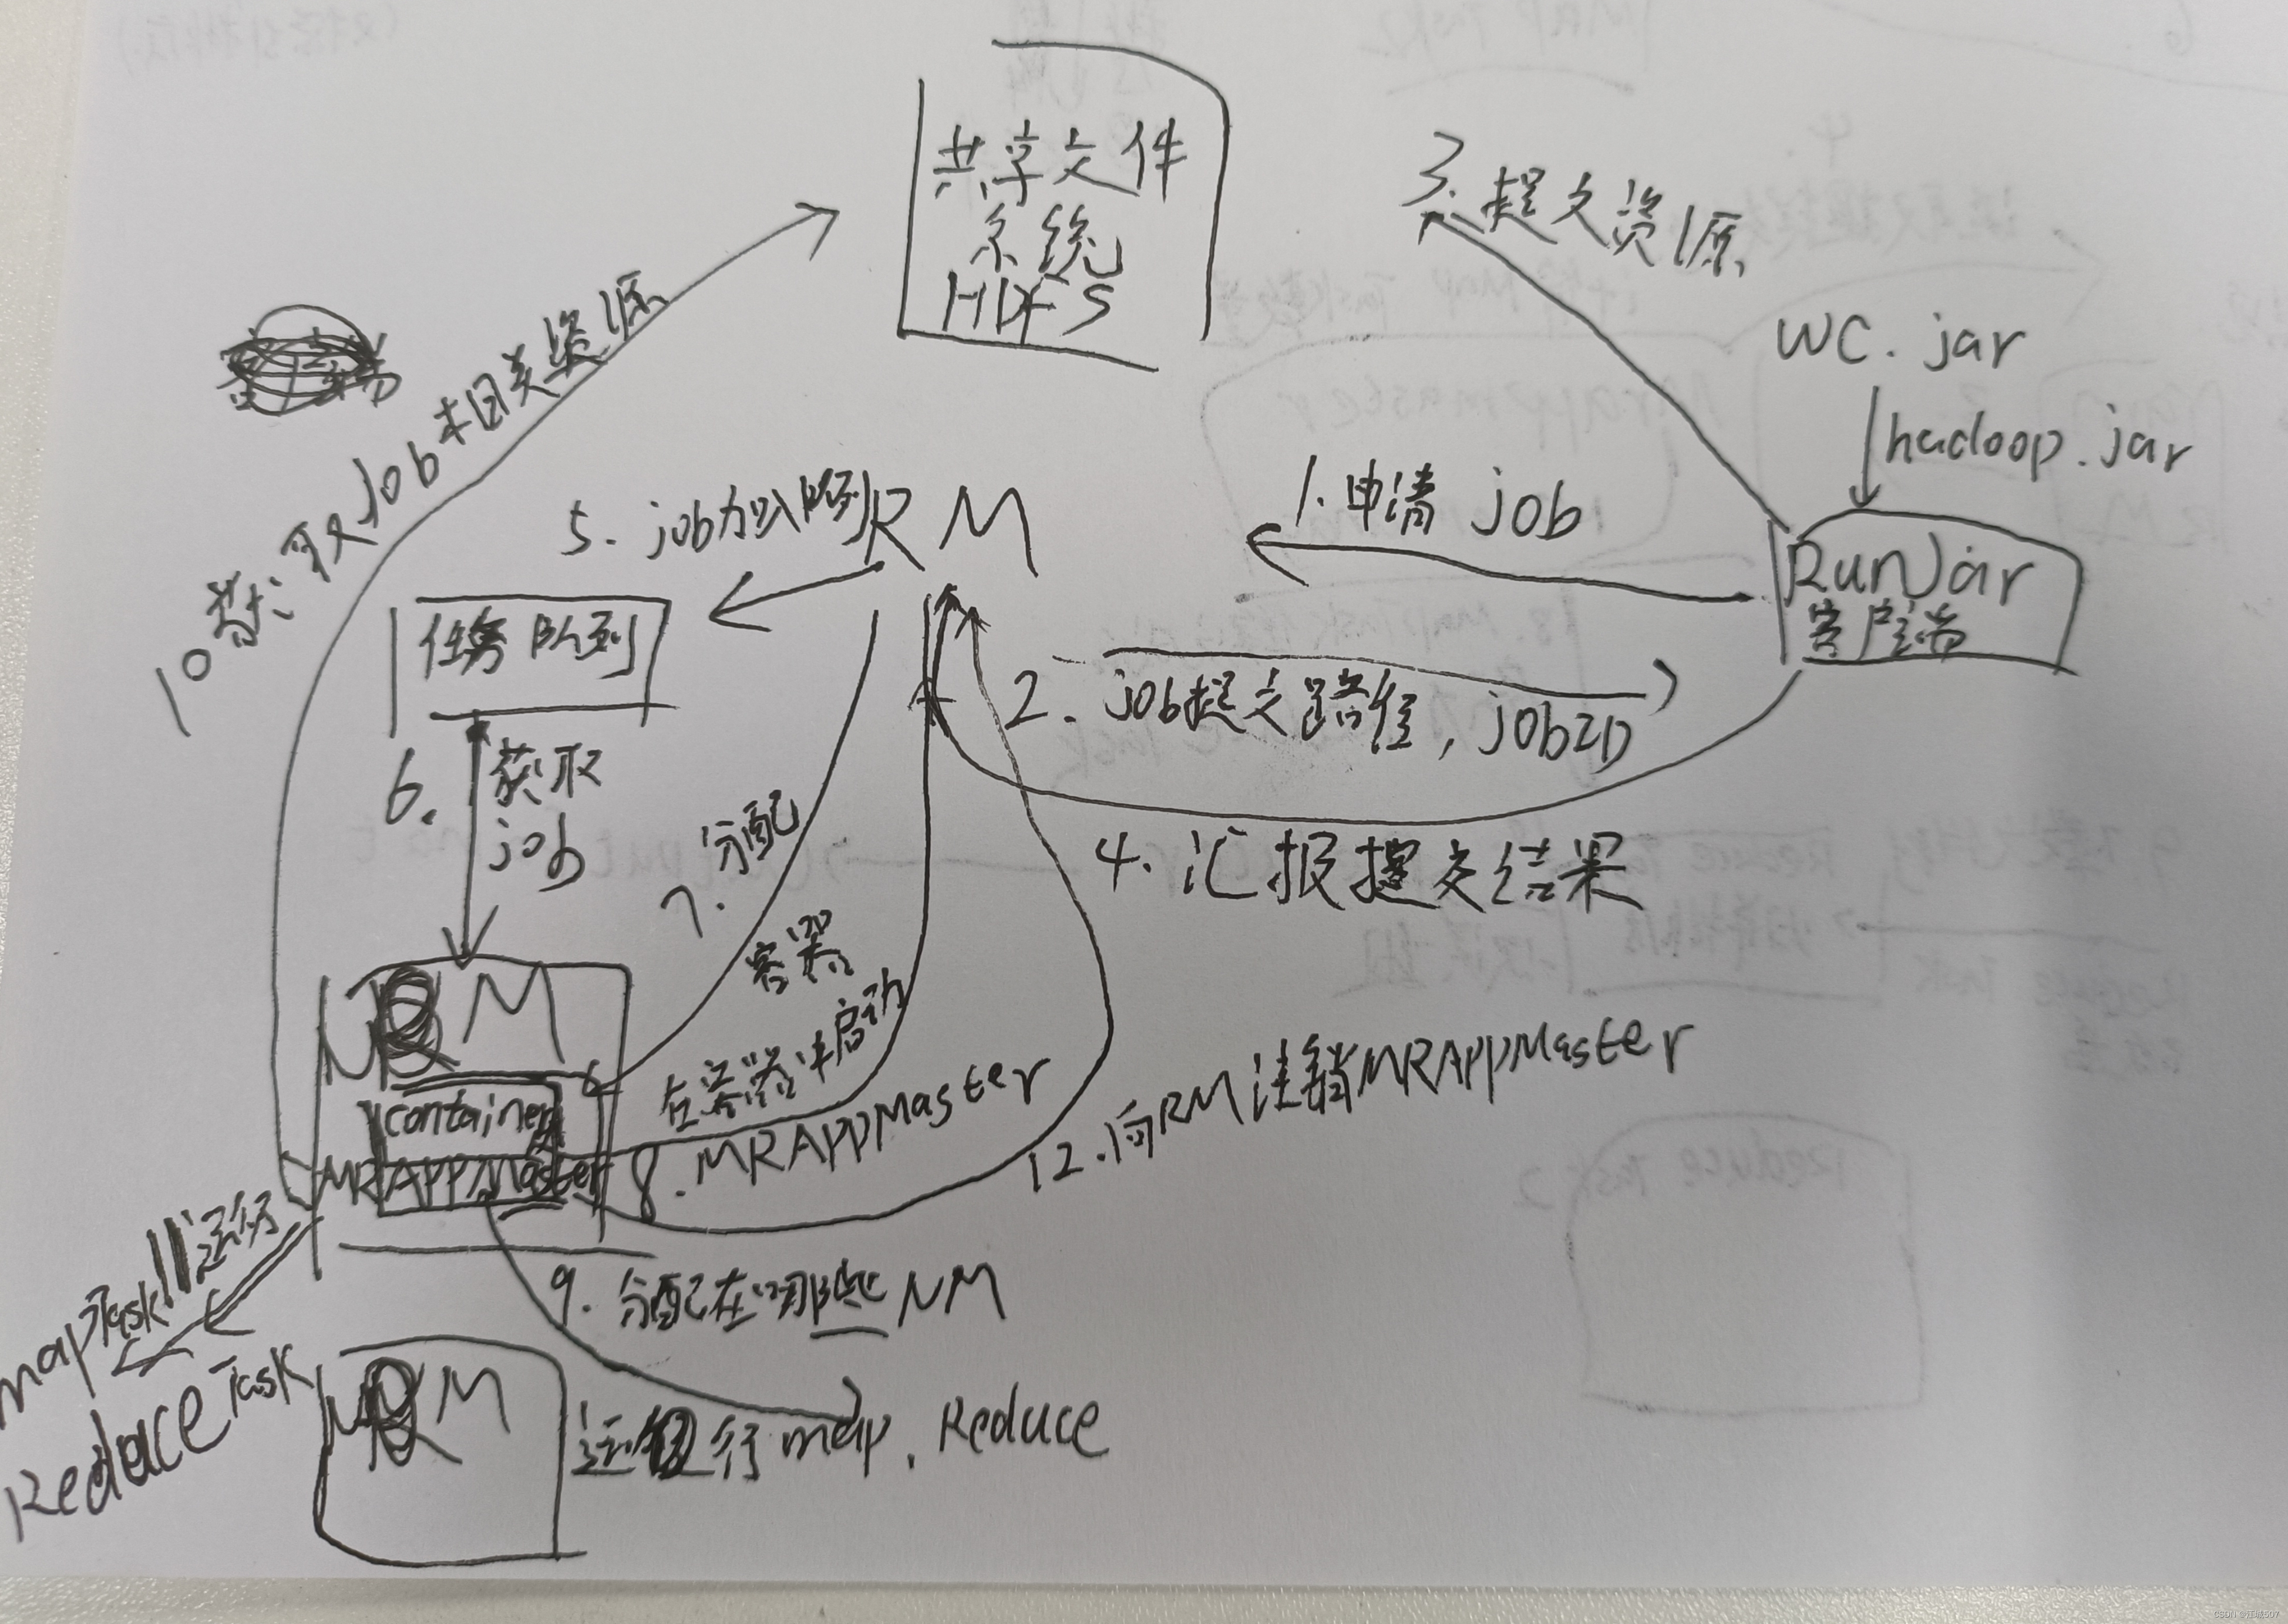 共享文件
系统
HDFS
3.提交资源
WC.jar
hadoop.jar
RunJar
客户端
1.申请 job
2.job提交路径,jobID
4.汇报提交结果
RM
5.job加入队列
任务队列
6.获取
job
7.分配
容器
NM
container
MRAPPMaster
在容器中启动
8.MRAPPMaster
9.分配在哪些NM
运行map.Reduce
NM
10获取Job相关资源
11运行
mapTask
ReduceTask
12.向RM注销MRAPPMaster
CSDN